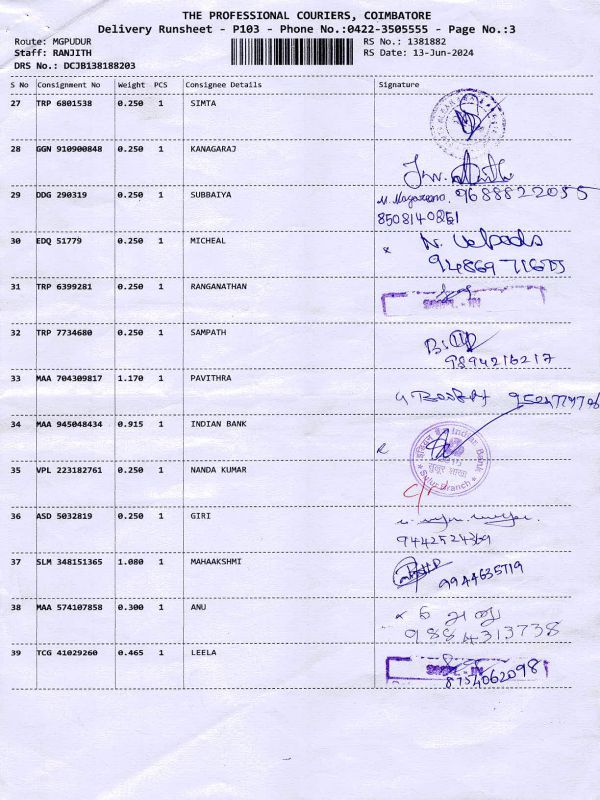 THE PROFESSIONAL COURIERS, COIMBATORE
Delivery Runsheet - P103 - Phone No.:0422-3505555 - Page No.:3
Route: MGPUDUR RS No.: 1381882
Staff: RANJITH RS Date: 13-Jun-2024
DRS No.: DCJB138188203
S No Consignment No Weight PCS Consignee Details Signature
27 TRP 6801538 0.250 1 SIMTA
28 GGN 910900848 0.250 1 KANAGARAJ
29 DDG 290319 0.250 1 SUBBAIYA 9688822055
8508140861
30 EDQ 51779 0.250 1 MICHEAL
31 TRP 6399281 0.250 1 RANGANATHAN
32 TRP 7734680 0.250 1 SAMPATH
9894216217
33 MAA 704309817 1.170 1 PAVITHRA
34 MAA 945048434 0.915 1 INDIAN BANK
Indian Bank
सुलूर शाखा
Sulur Branch
35 VPL 223182761 0.250 1 NANDA KUMAR
36 ASD 5032819 0.250 1 GIRI
9442524369
37 SLM 348151365 1.080 1 MAHAAKSHMI
9944635719
38 MAA 574107858 0.300 1 ANU அனு
9884313738
39 TCG 41029260 0.465 1 LEELA
8754062098